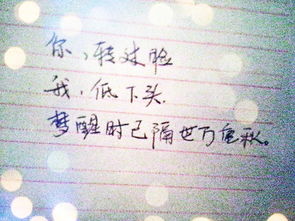 你，转过脸
我，低下头.
梦醒时已隔世万重秋。